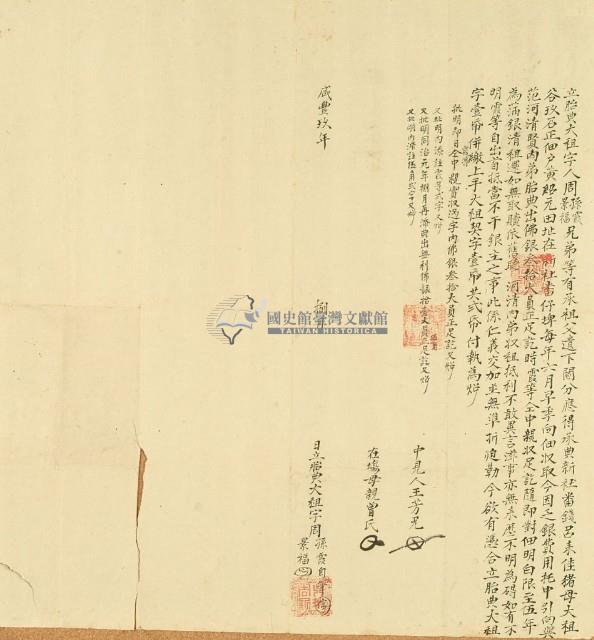 立胎典大租字人周孫霞景福兄弟等有承祖父遺下鬮分應得承典新社番錢呂未佳豬母大租
谷玖石正佃户黃煌元田址在新社番仔埤每年六月早季向佃收取今因乏銀費用托中引向與
范河清賢内弟胎典出佛銀叁拾大員正足訖時霞等仝中親收足訖隨即對佃明白限至伍年
為滿銀清租還如無取贖依舊 河清内弟收租抵利不敢異言滋事亦無來歷不明為碍如有不
明霞等自出首抵當不干銀主之事此係仁義交加並無準折迫勒今欲有憑合立胎典大租
字壹帋併繳上手大租契字壹帋共弍帋付執為炤
批明即日仝中親實收過字内佛銀叁拾大員正足訖又炤
又批明内添註霞等弍字又炤
又批明同治元年捌月再添典出無利佛銀拾壹大員正足訖又炤
又批明内添註伍角弍字又炤
中見人王芳兄
在塲母親曾氏
咸豐玖年 捌月 日立胎典大租字周孫霞景福自筆
國史館臺灣文獻館
TAIWAN HISTORICA